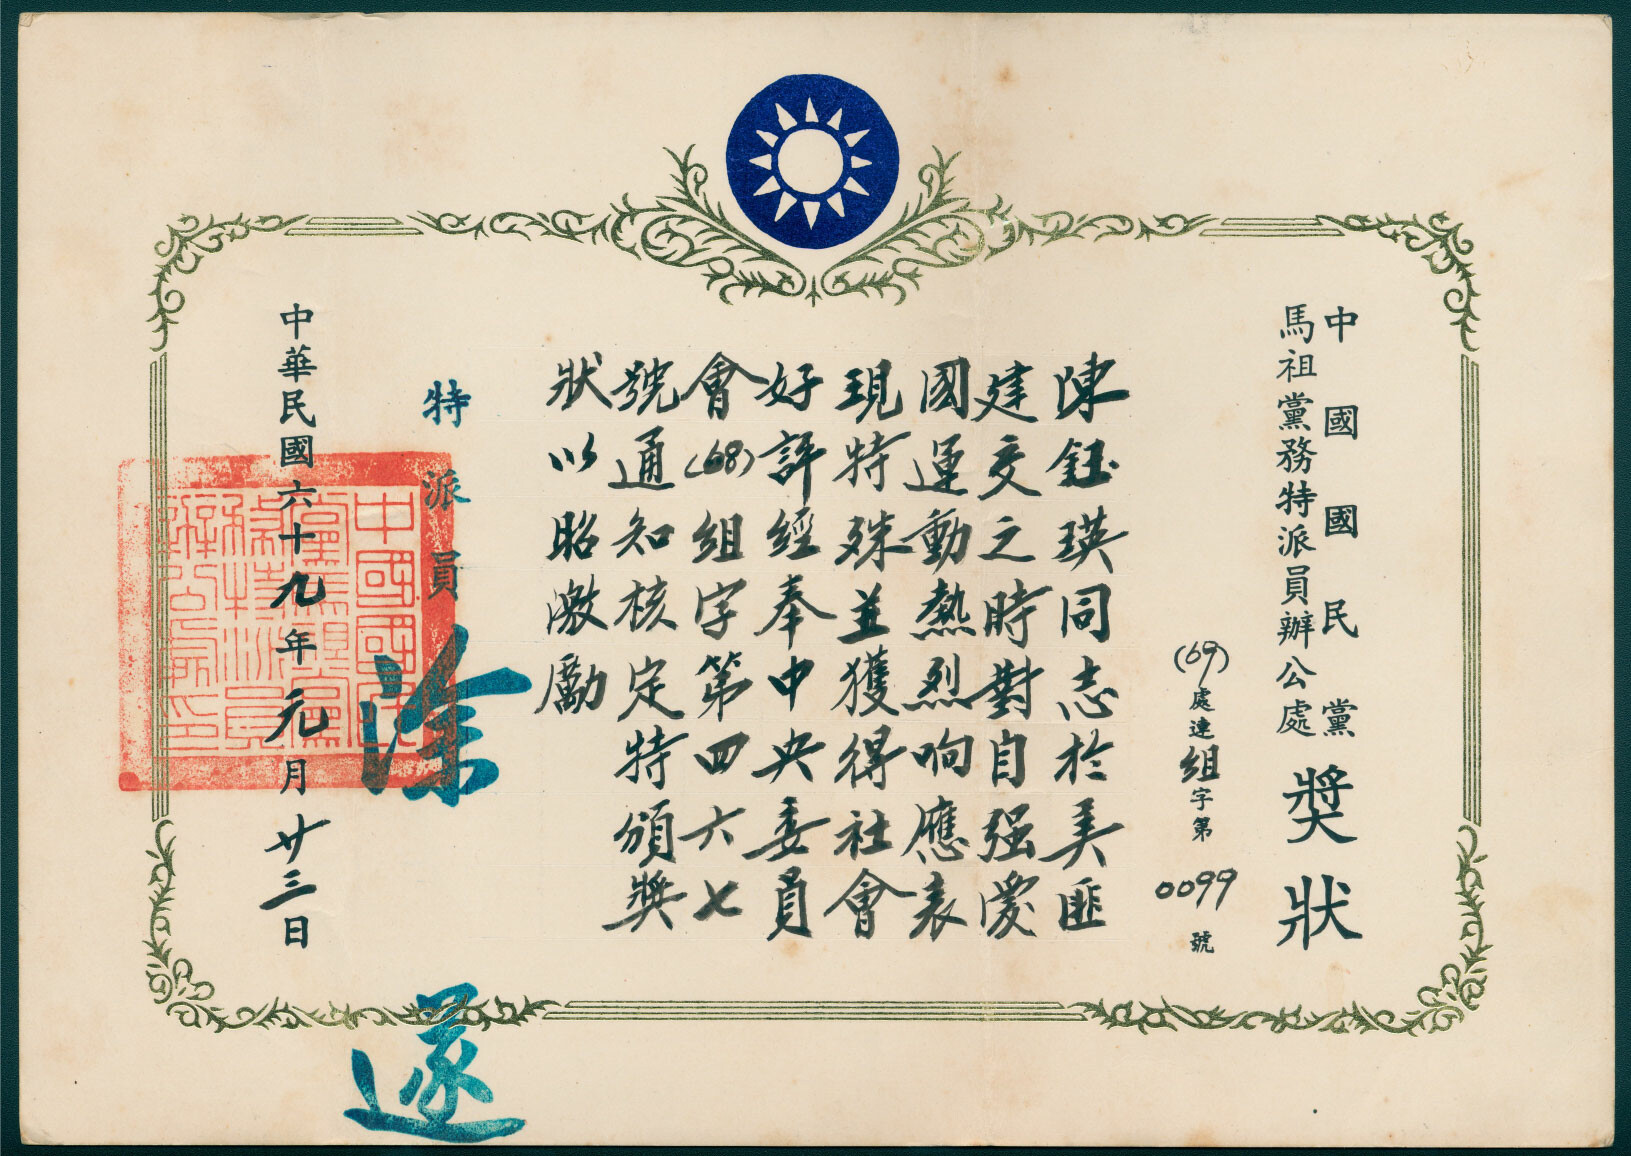 中國國民黨
馬祖黨務特派員辦公處
獎狀
(69)處連組字第0099號
陳鈺瑛同志於美匪
建交之時對自强愛
國運動熱烈响應表
現特殊並獲得社會
好評經奉中央委員
會(68)組字第四六七
號通知核定特頒獎
狀以昭激勵
特派員
涂遂
中華民國六十九年元月廿三日